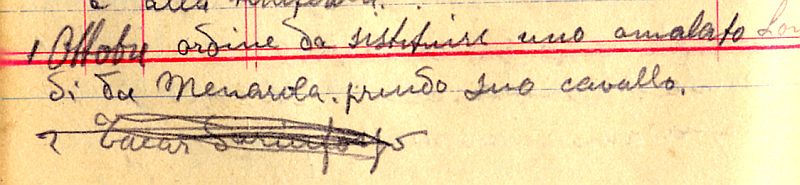 e alla
1 Ottobre ordine da sistituire uno amalato
di da Menarola. prendo suo cavallo.
2